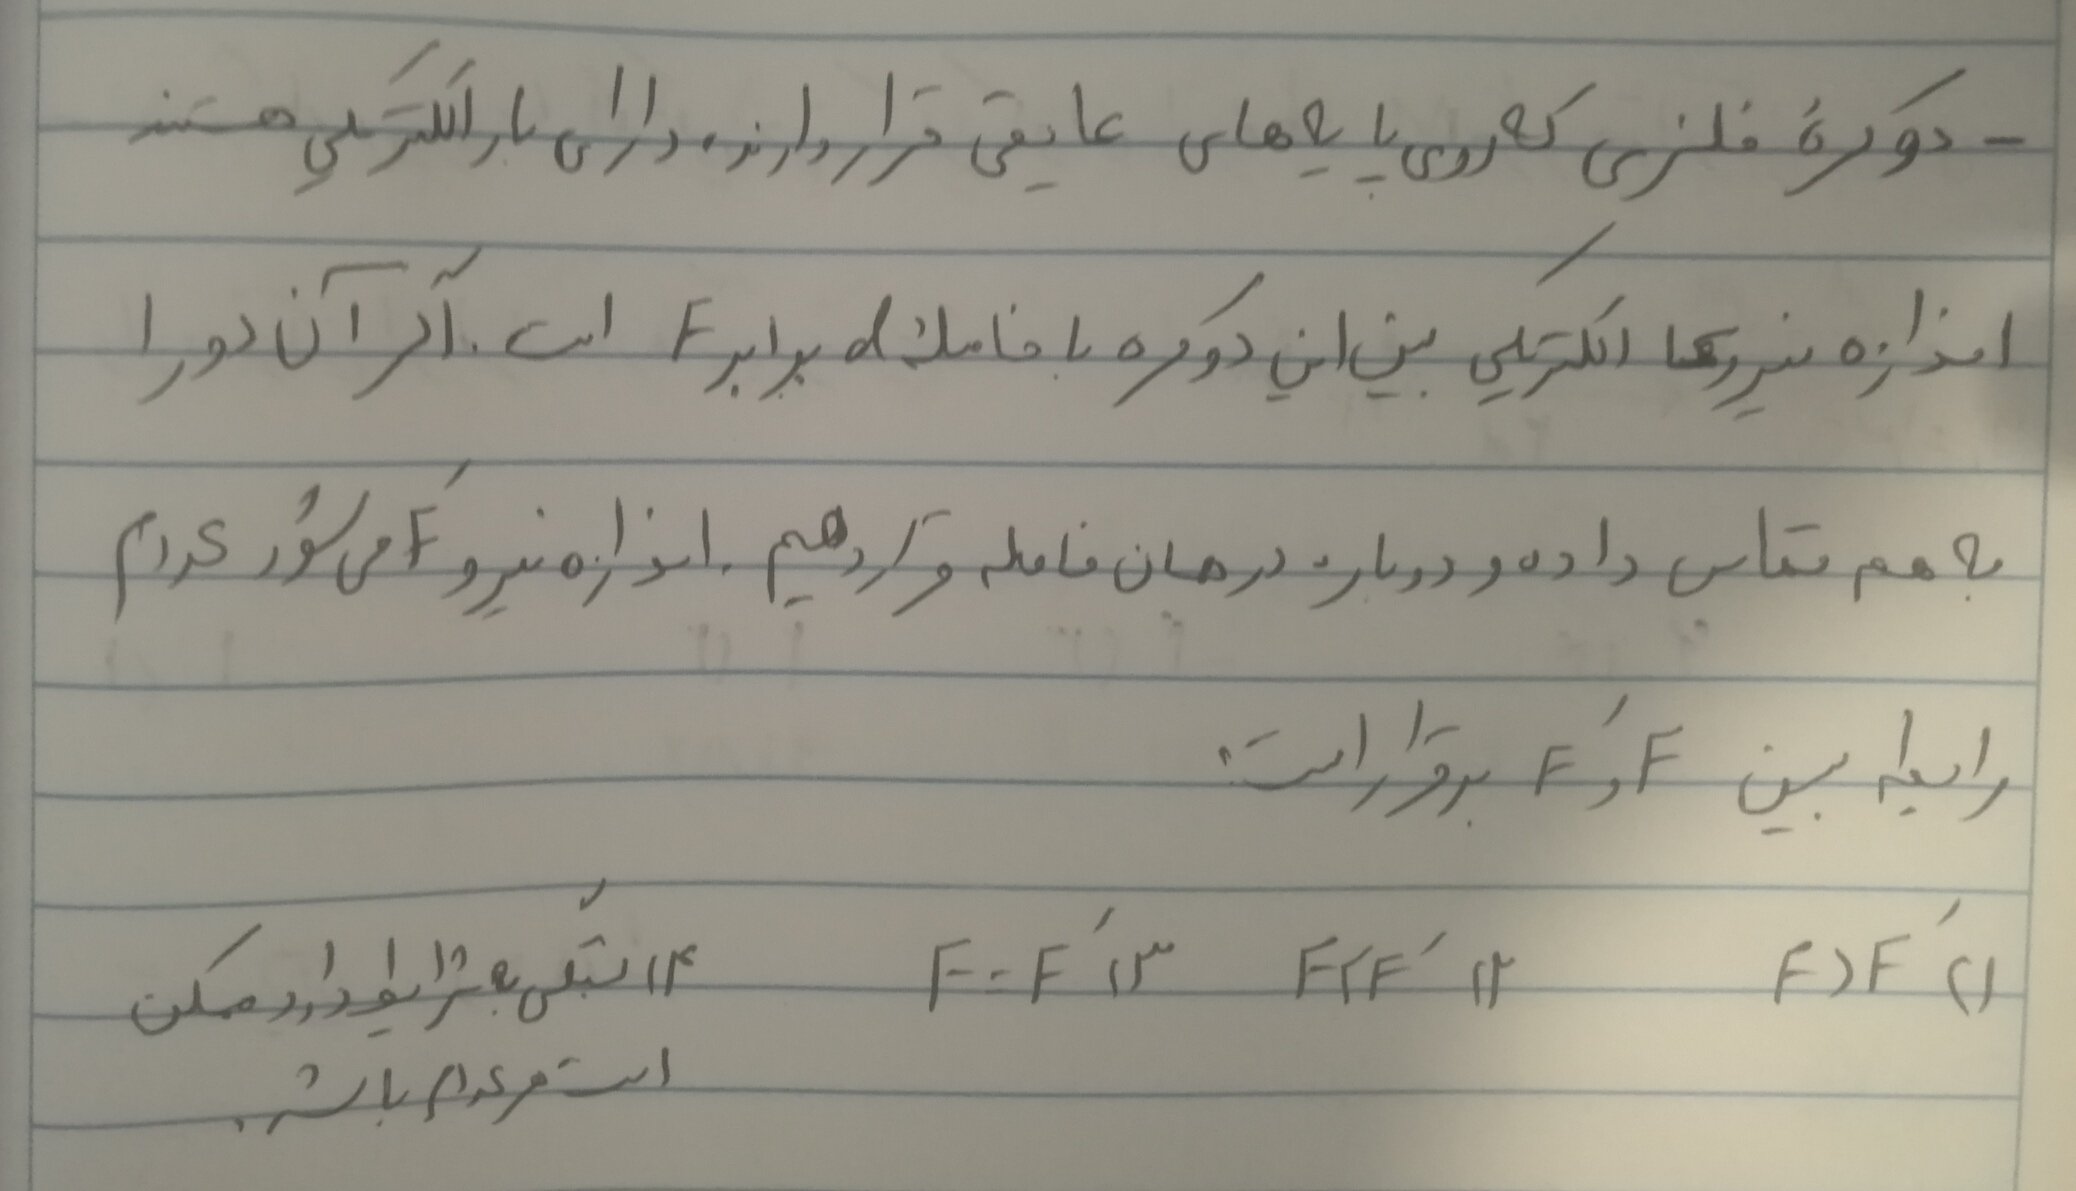 - دو کرهٔ فلزی که روی پایه های عایقی قرار دارند، دارای بار الکتریکی هستند
اندازه نیروها الکتریکی بین این دو کره با فاصلهٔ d برابر F است. اگر آن دو را
به هم تماس داده و دوباره در همان فاصله قرار دهیم. اندازه نیرو F′ می شود کدام
رابطه بین F و F′ برقرار است؟
۱) F > F′ ۲) F < F′ ۳) F = F′ ۴) بستگی به شرایط دارد ممکن
است هر کدام باشد.